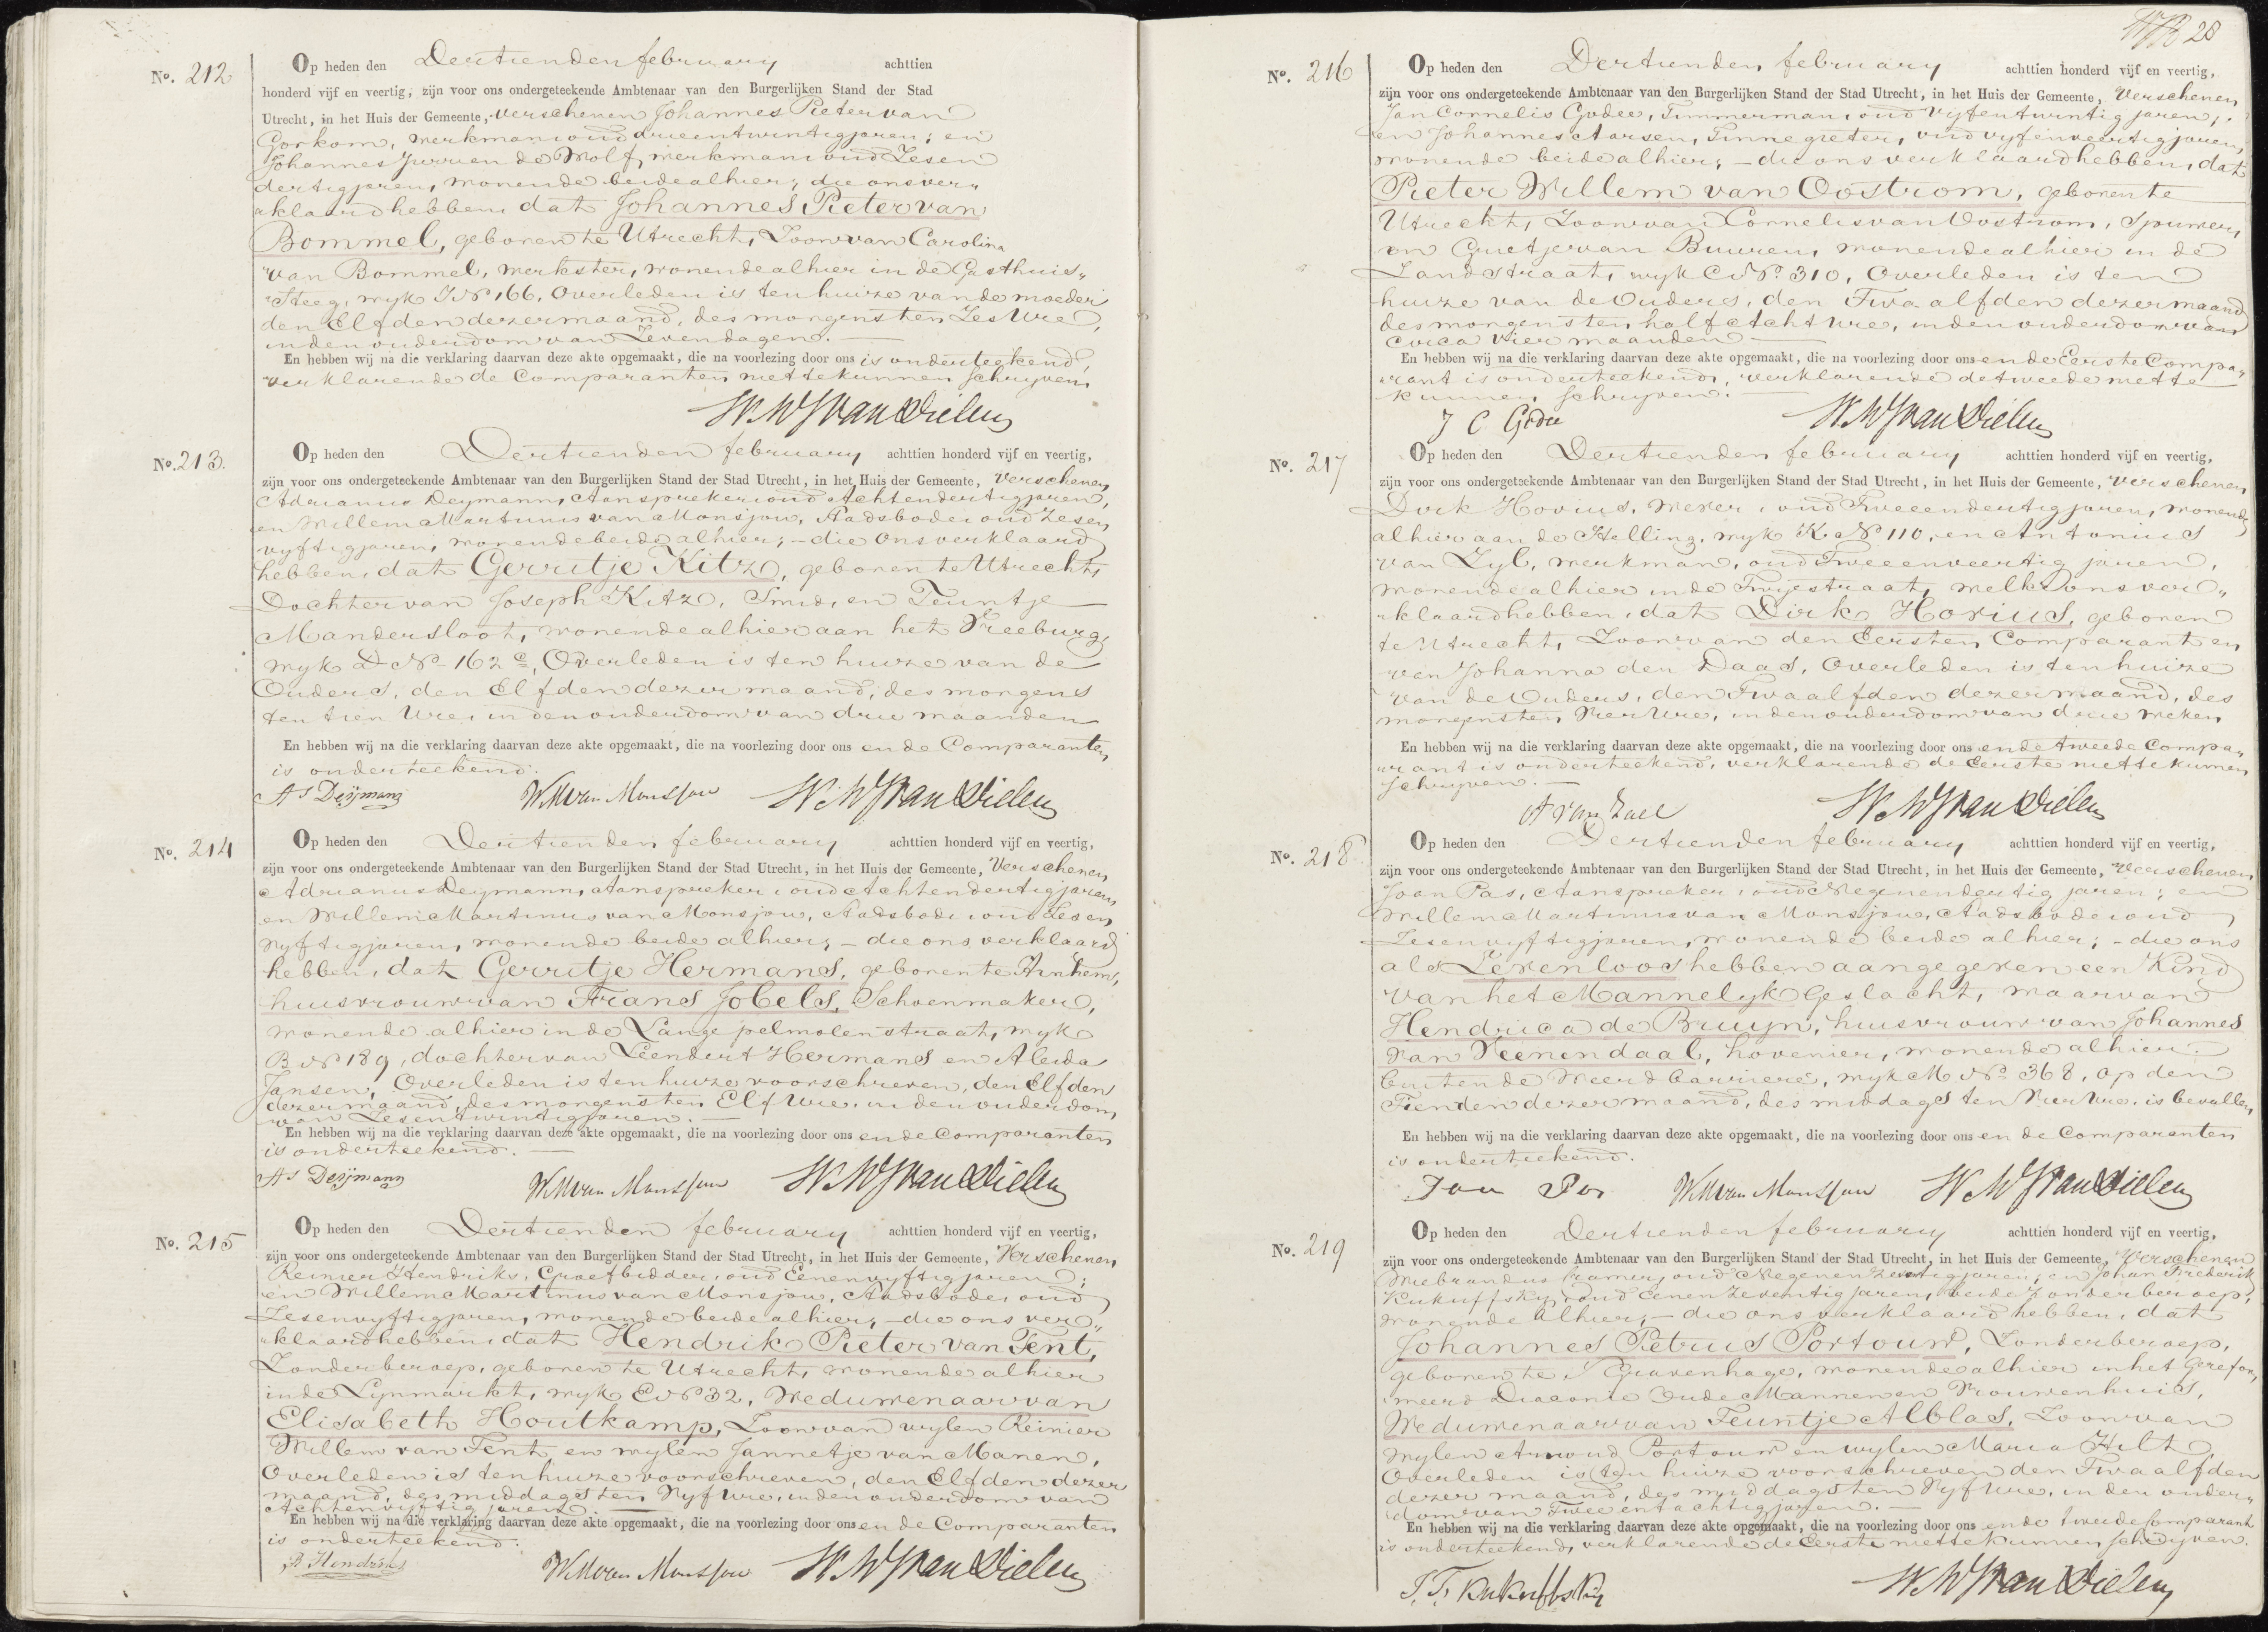 No. 212
Op heden den Dertienden february achttien
honderd vijf en veertig, zijn voor ons ondergeteekende Ambtenaar van den Burgerlijken Stand der Stad
Utrecht, in het Huis der Gemeente, verschenen Johannes Pieter van
Gorkom, werkman oud drieentwintig jaren; en
Johannes Jurrien de Wolf, werkman oud Zesen
dertig jaren, wonende beide alhier, die ons ver„
„klaard hebben dat Johannes Pieter van
Bommel, geboren te Utrecht, Zoon van Carolina
van Bommel, werkster, wonende alhier in de Gasthuis„
„Steeg, wyk I No 166, Overleden is ten huize van de moeder
den Elfden dezer maand, des morgens ten Zes Ure,
in den ouderdom van Zeven dagen. —
En hebben wij na die verklaring daarvan deze akte opgemaakt, die na voorlezing door ons is onderteekend,
verklarende de Comparanten niet te kunnen Schryven.
W W J van Dielen
No. 213.
Op heden den Dertienden february achttien honderd vijf en veertig,
zijn voor ons ondergeteekende Ambtenaar van den Burgerlijken Stand der Stad Utrecht, in het Huis der Gemeente, Verschenen
Adrianus Deymann, Aanspreker oud Achtendertig jaren,
en Willem Martinus van Monsjou, Stadsbode oud Zesen
vyftig jaren, wonende beide alhier; – die ons verklaard
hebben, dat Gerritje Kitz, geboren te Utrecht,
Dochter van Joseph Kitz, Smid, en Teuntje
Mandersloot, wonende alhier aan het Vreeburg,
wyk D No 162 c, Overleden is ten huize van de
Ouders, den Elfden dezer maand, des morgens
ten tien Ure, in den ouderdom van drie maanden
En hebben wij na die verklaring daarvan deze akte opgemaakt, die na voorlezing door ons en de Comparanten
is onderteekend.
AS Deijmann WM van Monsjou W W J van Dielen
No. 214
Op heden den Dertienden february achttien honderd vijf en veertig,
zijn voor ons ondergeteekende Ambtenaar van den Burgerlijken Stand der Stad Utrecht, in het Huis der Gemeente, Verschenen
Adrianus Deymann, Aanspreker oud Achtendertig jaren
en Willem Martinus van Monsjou, Stadsbode oud Zesen
vyftig jaren, wonende beide alhier; – die ons verklaard
hebben, dat Gerritje Hermans, geboren te Arnhem,
huisvrouw van Frans Jobels, Schoenmaker,
wonende alhier in de Lange pelmolenstraat, wyk
B No 189, dochter van Leendert Hermans en Aleida
Jansen, Overleden is ten huize voorschreven, den Elfden
dezer maand, des morgens ten Elf Ure, in den ouderdom
van Zesentwintig jaren. —
En hebben wij na die verklaring daarvan deze akte opgemaakt, die na voorlezing door ons en de Comparanten
is onderteekend. —
AS Deijmann WM van Monsjou W W J van Dielen
No. 215
Op heden den Dertienden february achttien honderd vijf en veertig,
zijn voor ons ondergeteekende Ambtenaar van den Burgerlijken Stand der Stad Utrecht, in het Huis der Gemeente, Verschenen
Reinier Hendriks, Groefbidder, oud Eenenvyftig jaren;
en Willem Martinus van Monsjou, Stadsbode, oud
Zesenvyftig jaren, wonende beide alhier, – die ons ver„
„klaard hebben dat Hendrik Pieter van Tent,
Zonder beroep, geboren te Utrecht, wonende alhier
in de Lynmarkt, wyk E No 32, Weduwenaar van
Elisabeth Houtkamp, Zoon van wylen Reinier
Willem van Tent en wylen Jannetje van Manen,
Overleden is ten huize voorschreven, den Elfden dezer
maand, des middags ten Vyf Ure, in den ouderdom van
Achtenvyftig jaren. —
En hebben wij na die verklaring daarvan deze akte opgemaakt, die na voorlezing door ons en de Comparanten
is onderteekend.
R Hendriks WM van Monsjou W W J van Dielen
28
No. 216
Op heden den Dertienden february achttien honderd vijf en veertig,
zijn voor ons ondergeteekende Ambtenaar van den Burgerlijken Stand der Stad Utrecht, in het Huis der Gemeente, Verschenen
Jan Cornelis Godee, Timmerman, oud Vyfentwintig jaren,
en Johannes Aarsen, Tinnegieter, oud vyfenveertig jaren,
wonende beide alhier; – die ons verklaard hebben, dat
Pieter Willem van Oostrom, geboren te
Utrecht, Zoon van Cornelis van Oostrom, Spuiwer,
en Grietje van Buuren, wonende alhier in de
Zandstraat, wyk C No 310, Overleden is ten
huize van de Ouders, den Twaalfden dezer maand
des morgens ten half Acht Ure, in den ouderdom van
circa Vier maanden —
En hebben wij na die verklaring daarvan deze akte opgemaakt, die na voorlezing door ons en de Eerste Compa„
„rant is onderteekend, verklarende de tweede niet te
kunnen Schryven. —
J C Godee W W J van Dielen
No. 217
Op heden den Dertienden february achttien honderd vijf en veertig,
zijn voor ons ondergeteekende Ambtenaar van den Burgerlijken Stand der Stad Utrecht, in het Huis der Gemeente, Verschenen
Dirk Hovius, Wever, oud Tweeendertig jaren, wonende
alhier aan de Helling, wyk K No 110, en Antonius
van Zyl, werkman, oud Tweeenveertig jaren,
wonende alhier in de Twyestraat, welke ons ver„
„klaard hebben, dat Dirk Hovius, geboren
te Utrecht, Zoon van den Eersten Comparant en
van Johanna den Daas, Overleden is ten huize
van de Ouders, den Twaalfden dezer maand, des
morgens ten Vier Ure, in den ouderdom van drie weken
En hebben wij na die verklaring daarvan deze akte opgemaakt, die na voorlezing door ons en de tweede Compa„
„rant is onderteekend, verklarende de Eerste niet te kunnen
Schryven. —
A van W W J van Dielen
No. 218
Op heden den Dertienden february achttien honderd vijf en veertig,
zijn voor ons ondergeteekende Ambtenaar van den Burgerlijken Stand der Stad Utrecht, in het Huis der Gemeente, Verschenen
Joan Pas, Aanspreker, oud Negenendertig jaren; en
Willem Martinus van Monsjou, Stadsbode oud
Zesenvyftig jaren, wonende beide alhier; – die ons
als Levenloos hebben aangegeven een Kind
van het Mannelyk Geslacht, waarvan
Hendrica de Bruyn, huisvrouw van Johannes
van Veenendaal, hovenier, wonende alhier
buiten de Weerdbarriere, wyk M No 368, op den
Tienden dezer maand, des middags ten Vier Ure, is bevallen
En hebben wij na die verklaring daarvan deze akte opgemaakt, die na voorlezing door ons en de Comparanten
is onderteekend.
Joan Pas WM van Monsjou W W J van Dielen
No. 219
Op heden den Dertienden february achttien honderd vijf en veertig,
zijn voor ons ondergeteekende Ambtenaar van den Burgerlijken Stand der Stad Utrecht, in het Huis der Gemeente, Verschenen
Wiebrandus Kramer, oud Negenenzestig jaren, en Johan Frederik
Kukuffsky, oud Eenenzeventig jaren, beide zonder beroep,
wonende Alhier, – die ons verklaard hebben, dat
Johannes Petrus Portouw, Zonder beroep,
geboren te S Gravenhage, wonende alhier in het Gerefor„
„meerd Diaconie Oude Mannen en Vrouwenhuis,
Weduwenaar van Teuntje Alblas, Zoon van
wylen Arnoud Portouw en wylen Maria Hilt,
Overleden is ten huize voorschreven den Twaalfden
dezer maand, des middags ten Vyf Ure, in den ouder„
„dom van Tweeentachtig jaren. —
En hebben wij na die verklaring daarvan deze akte opgemaakt, die na voorlezing door ons en de tweede Comparant
is onderteekend, verklarende de Eerste niet te kunnen Schryven.
J. F. Kukuffsky W W J van Dielen